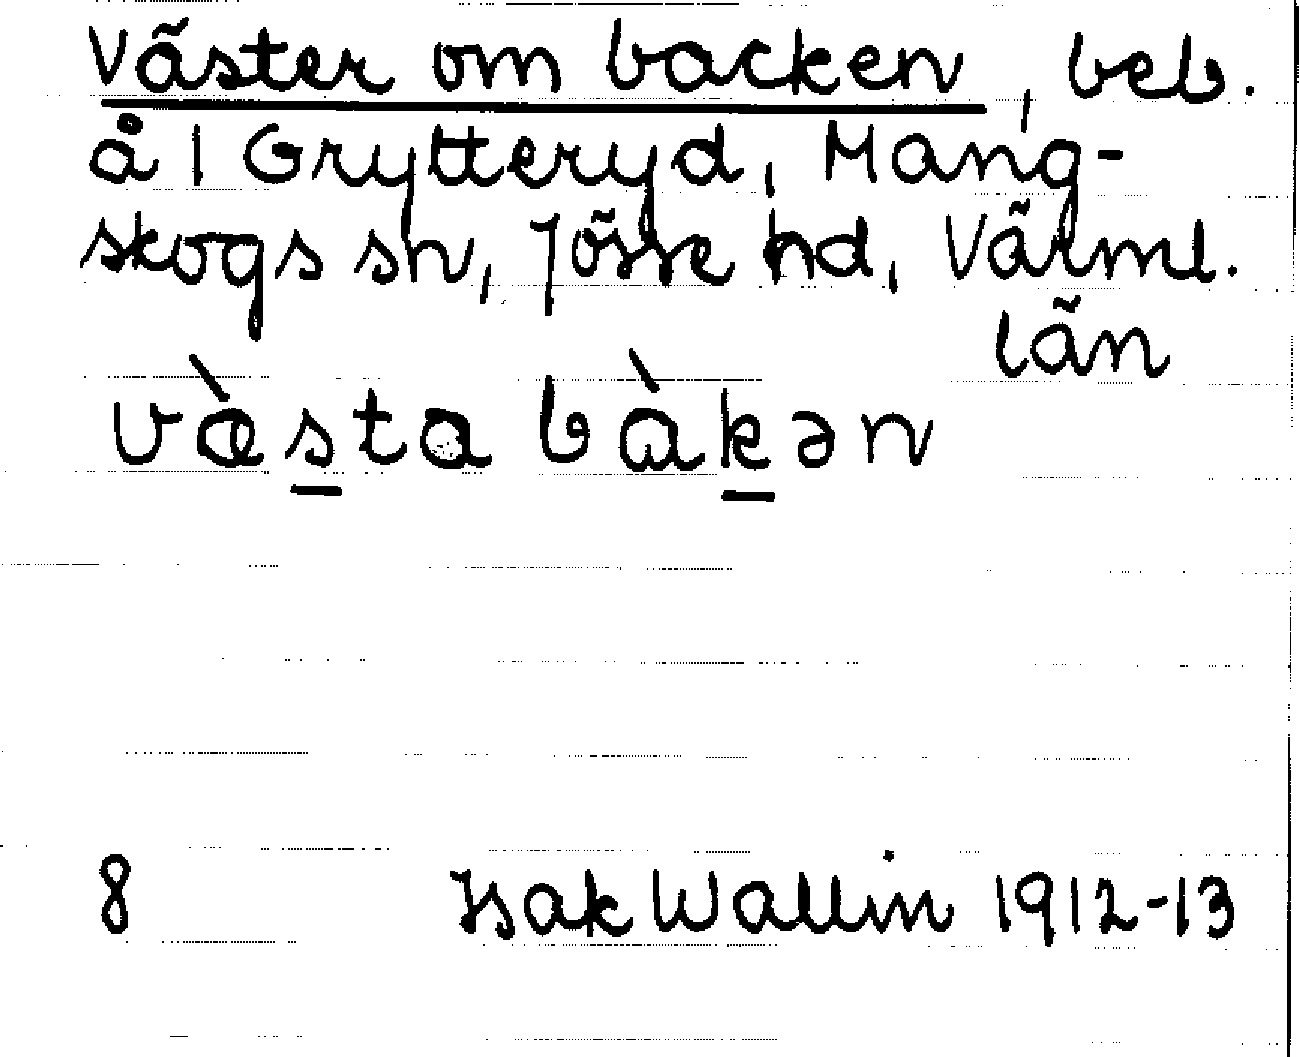 Väster om backen, beb.
å 1 Grytteryd, Mang-
skogs sn, Jösse hd, Värml.
län
væ̀s̲ta bàk̲ən
8 Isak Wallin 1912-13